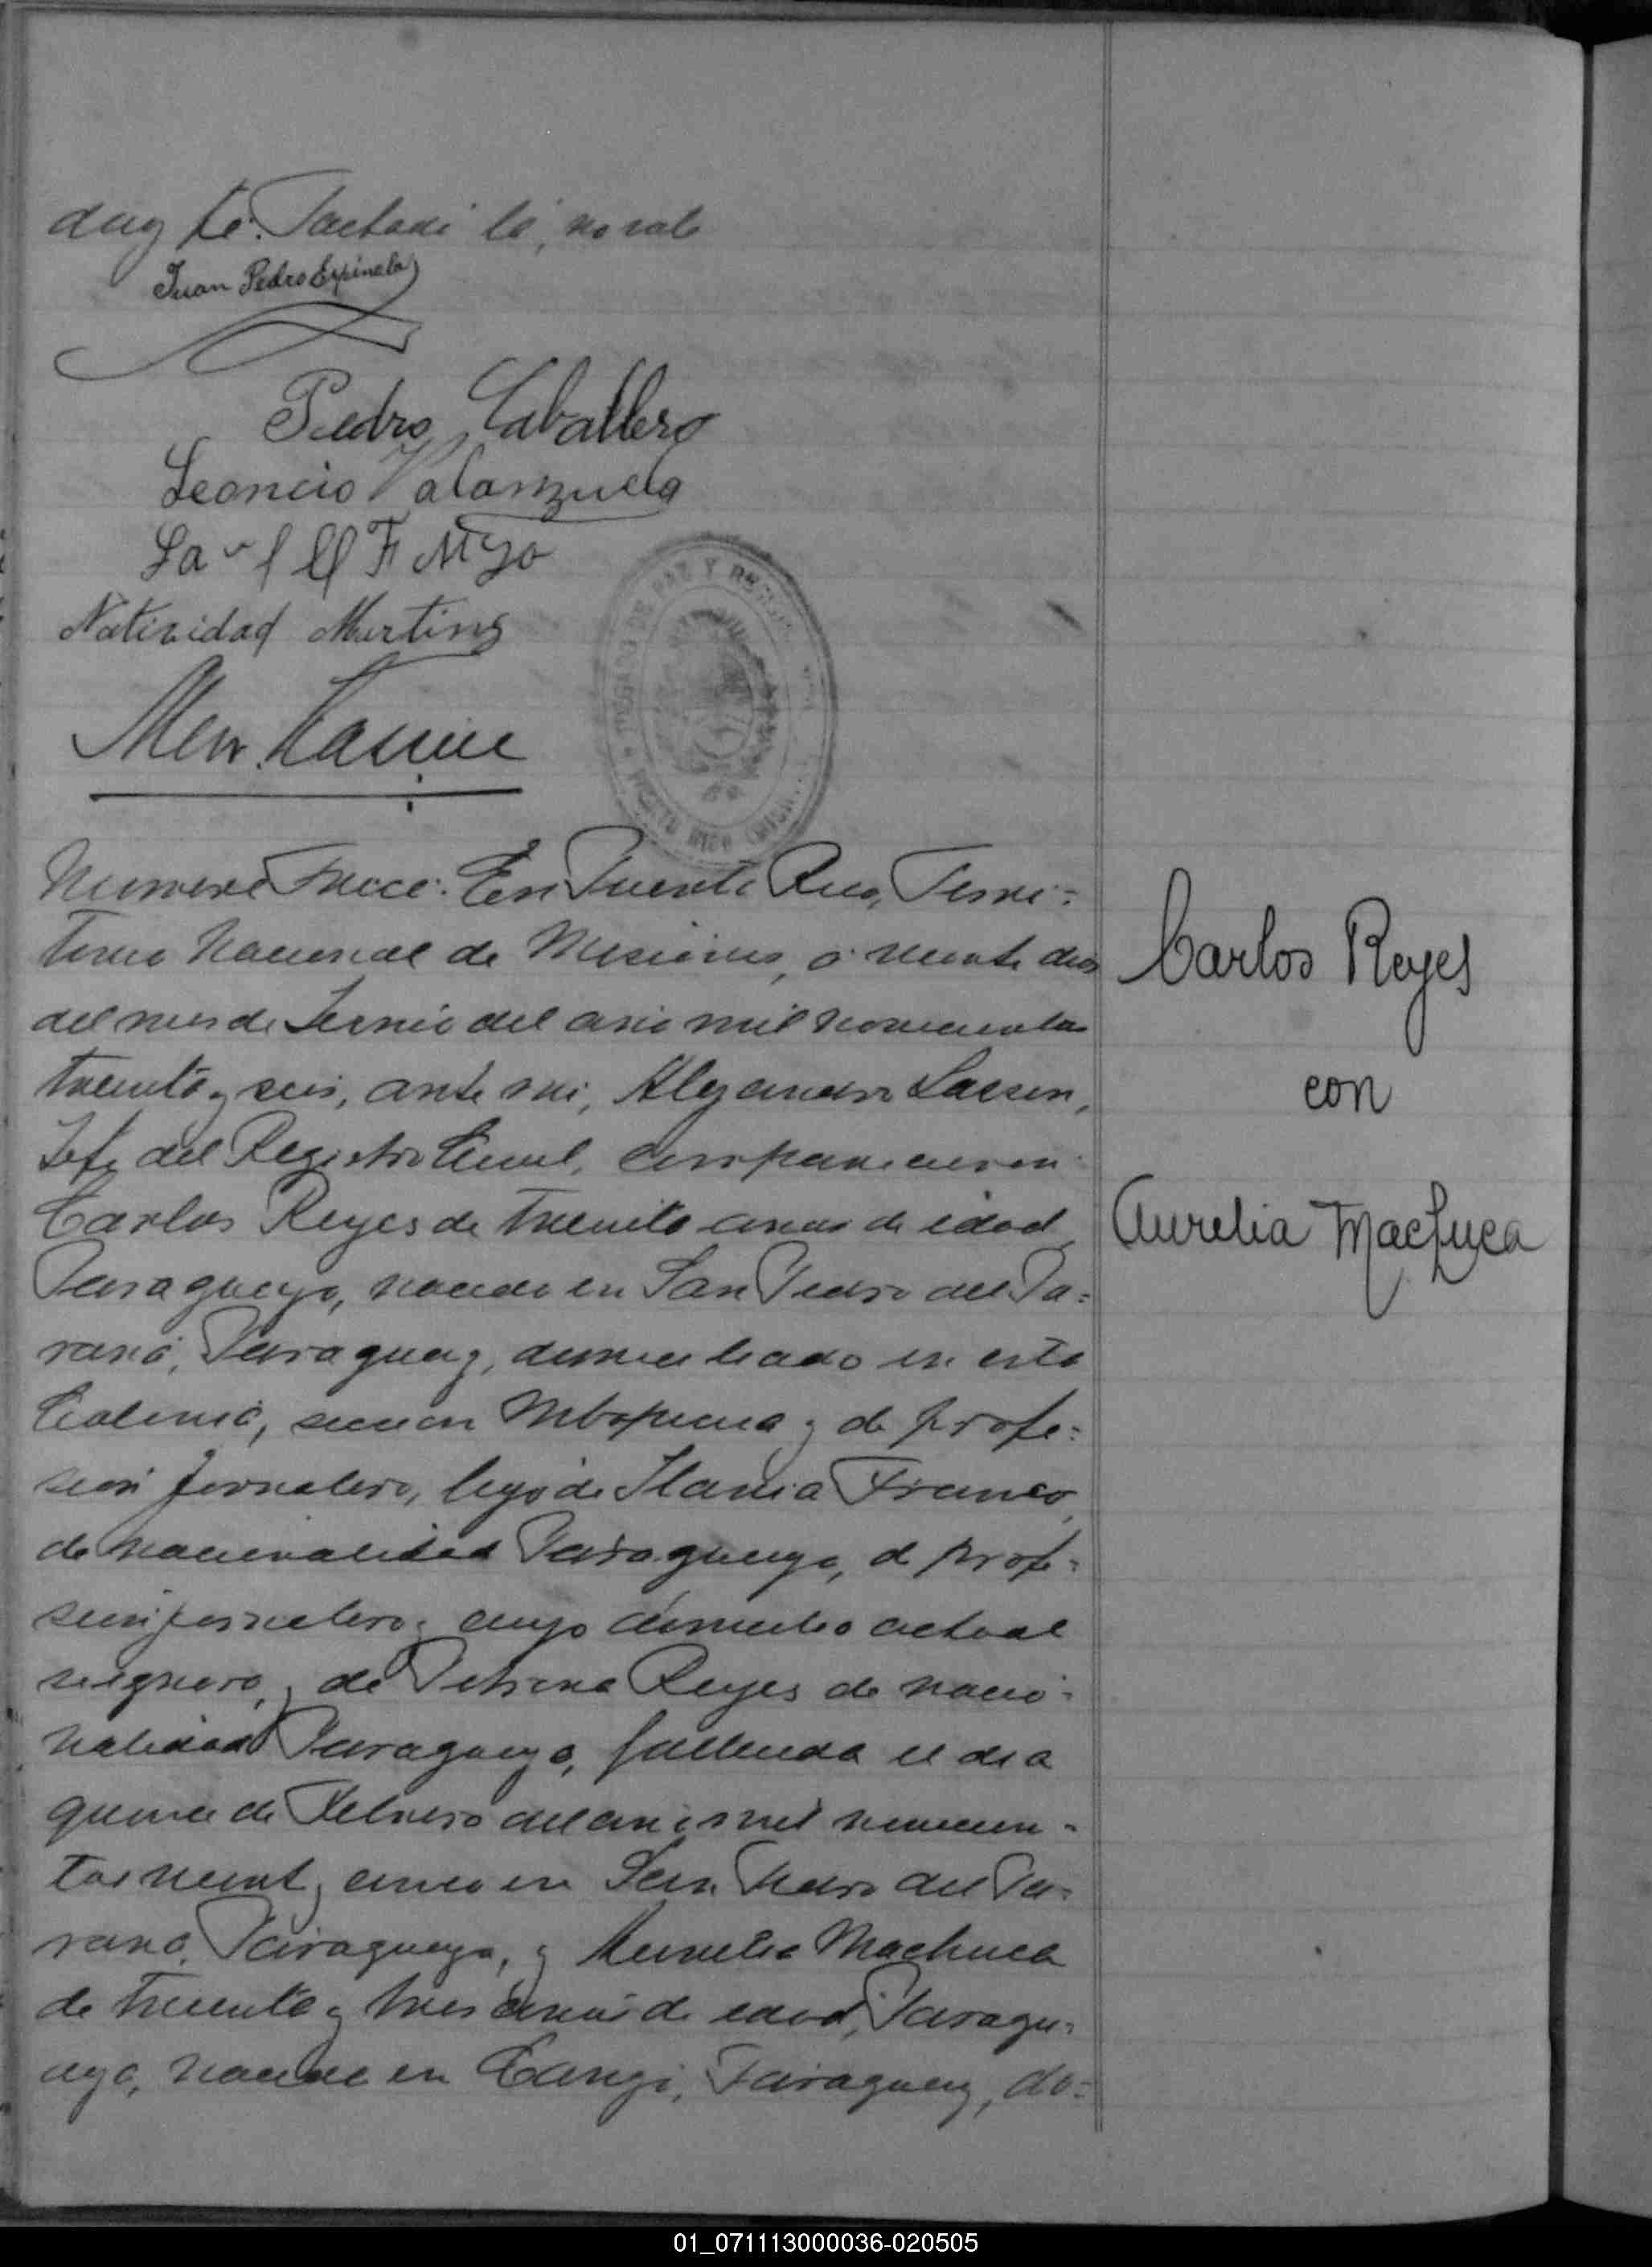 doy fé. Tachado: lo, no vale
Juan Pedro Espinola
Pedro Caballero
Leoncio Valanzuela
Natividad Martins
Alej. Lassen
JUZGADO DE PAZ Y
PUERTO RICO
Número Trece: En Puerto Rico, Terri=
torio Nacional de Misiones, a veinte dias
del mes de Junio del año mil novecientos
treinta y seis, ante mi, Alejandro Lassen,
Jefe del Registro Civil, comparecieron:
Carlos Reyes de treinta años de edad,
Paraguayo, nacido en San Pedro del Pa=
raná, Paraguay, domiciliado en esta
Colonia, seccion Mbopicua y de profe=
sión jornalero, hijo de Franco,
de nacionalidad Paraguaya, de profe=
sión jornalero, cuyo domicilio actual
se ignora, y de Petrona Reyes de nacio=
nalidad Paraguaya, fallecida el dia
quince de Febrero del año mil novecien=
tos veinte y cinco en San Pedro del Pa=
raná, Paraguayo, y Aurelia Machuca
de treinta y tres años de edad, Paragu=
aya, nacida en Cangó, Paraguay, do=
Carlos Reyes
con
Aurelia Machuca
01_071113000036-020505